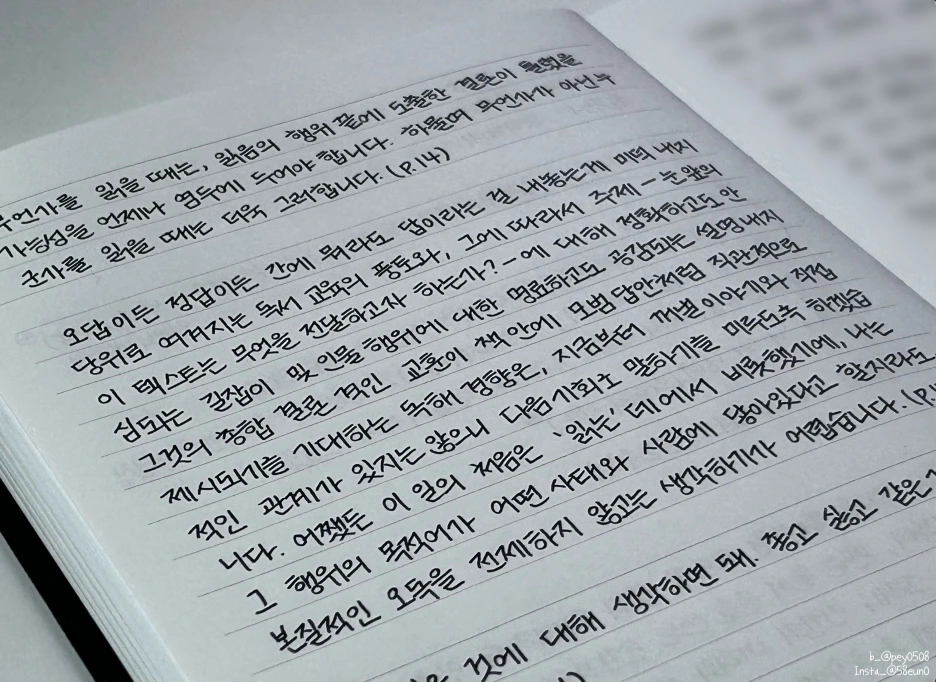 무언가를 읽을 때는, 읽음의 행위 끝에 도출한 결론이 틀렸을
가능성을 언제나 염두에 두어야 합니다. 하물며 무언가가 아닌 누
군가를 읽을 때는 더욱 그러합니다. (P.14)
오답이든 정답이든 간에 뭐라도 답이라는 걸 내놓는게 미덕 내지
당위로 여겨지는 독서 교육의 풍토와, 그에 따라서 주제 - 눈 앞의
이 텍스트는 무엇을 전달하고자 하는가? - 에 대해 정확하고도 안
심되는 길잡이 및 인물 행위에 대한 명료하고도 공감되는 설명 내지
그것의 종합 결론 격인 교훈이 책 안에 모범 답안처럼 직관적으로
제시되기를 기대하는 독해 경향은, 지금부터 꺼낼 이야기와 직접
적인 관계가 있지는 않으니 다음 기회로 말하기를 미루도록 하겠습
니다. 어쨌든 이 일의 처음은 '읽는' 데에서 비롯했기에, 나는
그 행위의 목적어가 어떤 사태와 사람에 닿아있다고 할지라도
본질적인 오독을 전제하지 않고는 생각하기가 어렵습니다. (P.
것에 대해 생각하면 돼. 좋고 싫고 같은
b_@pey0508
Insta_@58eun0